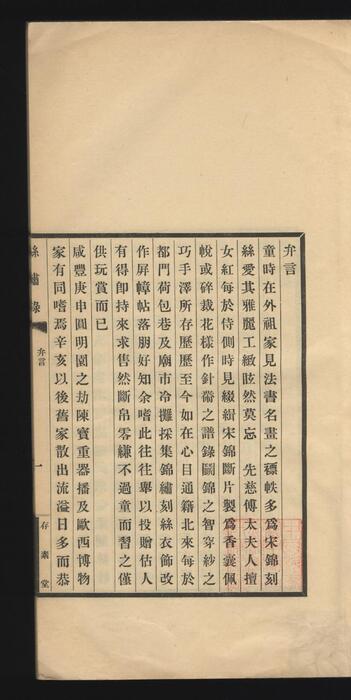 弁言
童時在外祖家見法書名畫之褾帙多爲宋錦刻
絲愛其雅麗工緻眩然莫忘　先慈傅太夫人擅
女紅每於侍側時見綴緝宋錦斷片製爲香囊佩
帨或碎裁花樣作針黹之譜錄鬭錦之智穿紗之
巧手澤所存歷歷至今如在心目通籍北來每於
都門荷包巷及廟市冷攤採集錦繡刻絲衣飾改
作屏幛帖落朋好知余嗜此往往舉以投贈估人
有得卽持來求售然斷帛零縑不過童而習之僅
供玩賞而已
咸豐庚申圓明園之劫陳寶重器播及歐西博物
家有同嗜焉辛亥以後舊家散出流溢日多而恭
絲繡錄
弁言
一
存素堂